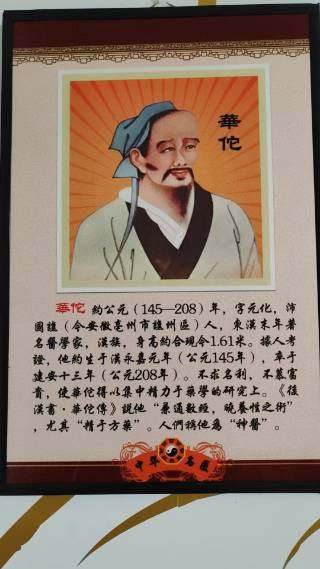 華佗
華佗 約公元（145—208）年，字元化，沛
國譙（今安徽亳州市譙州區）人，東漢末年著
名醫學家，漢族，身高約合現今1.61米。據人考
證，他約生于漢永嘉元年（公元145年），卒于
建安十三年（公元208年）。不求名利，不慕富
貴，使華佗得以集中精力于藥學的研究上。《後
漢書·華佗傳》說他“兼通數經，曉養性之術”
，尤其“精于方藥”。人們稱他為“神醫”。
中华名医